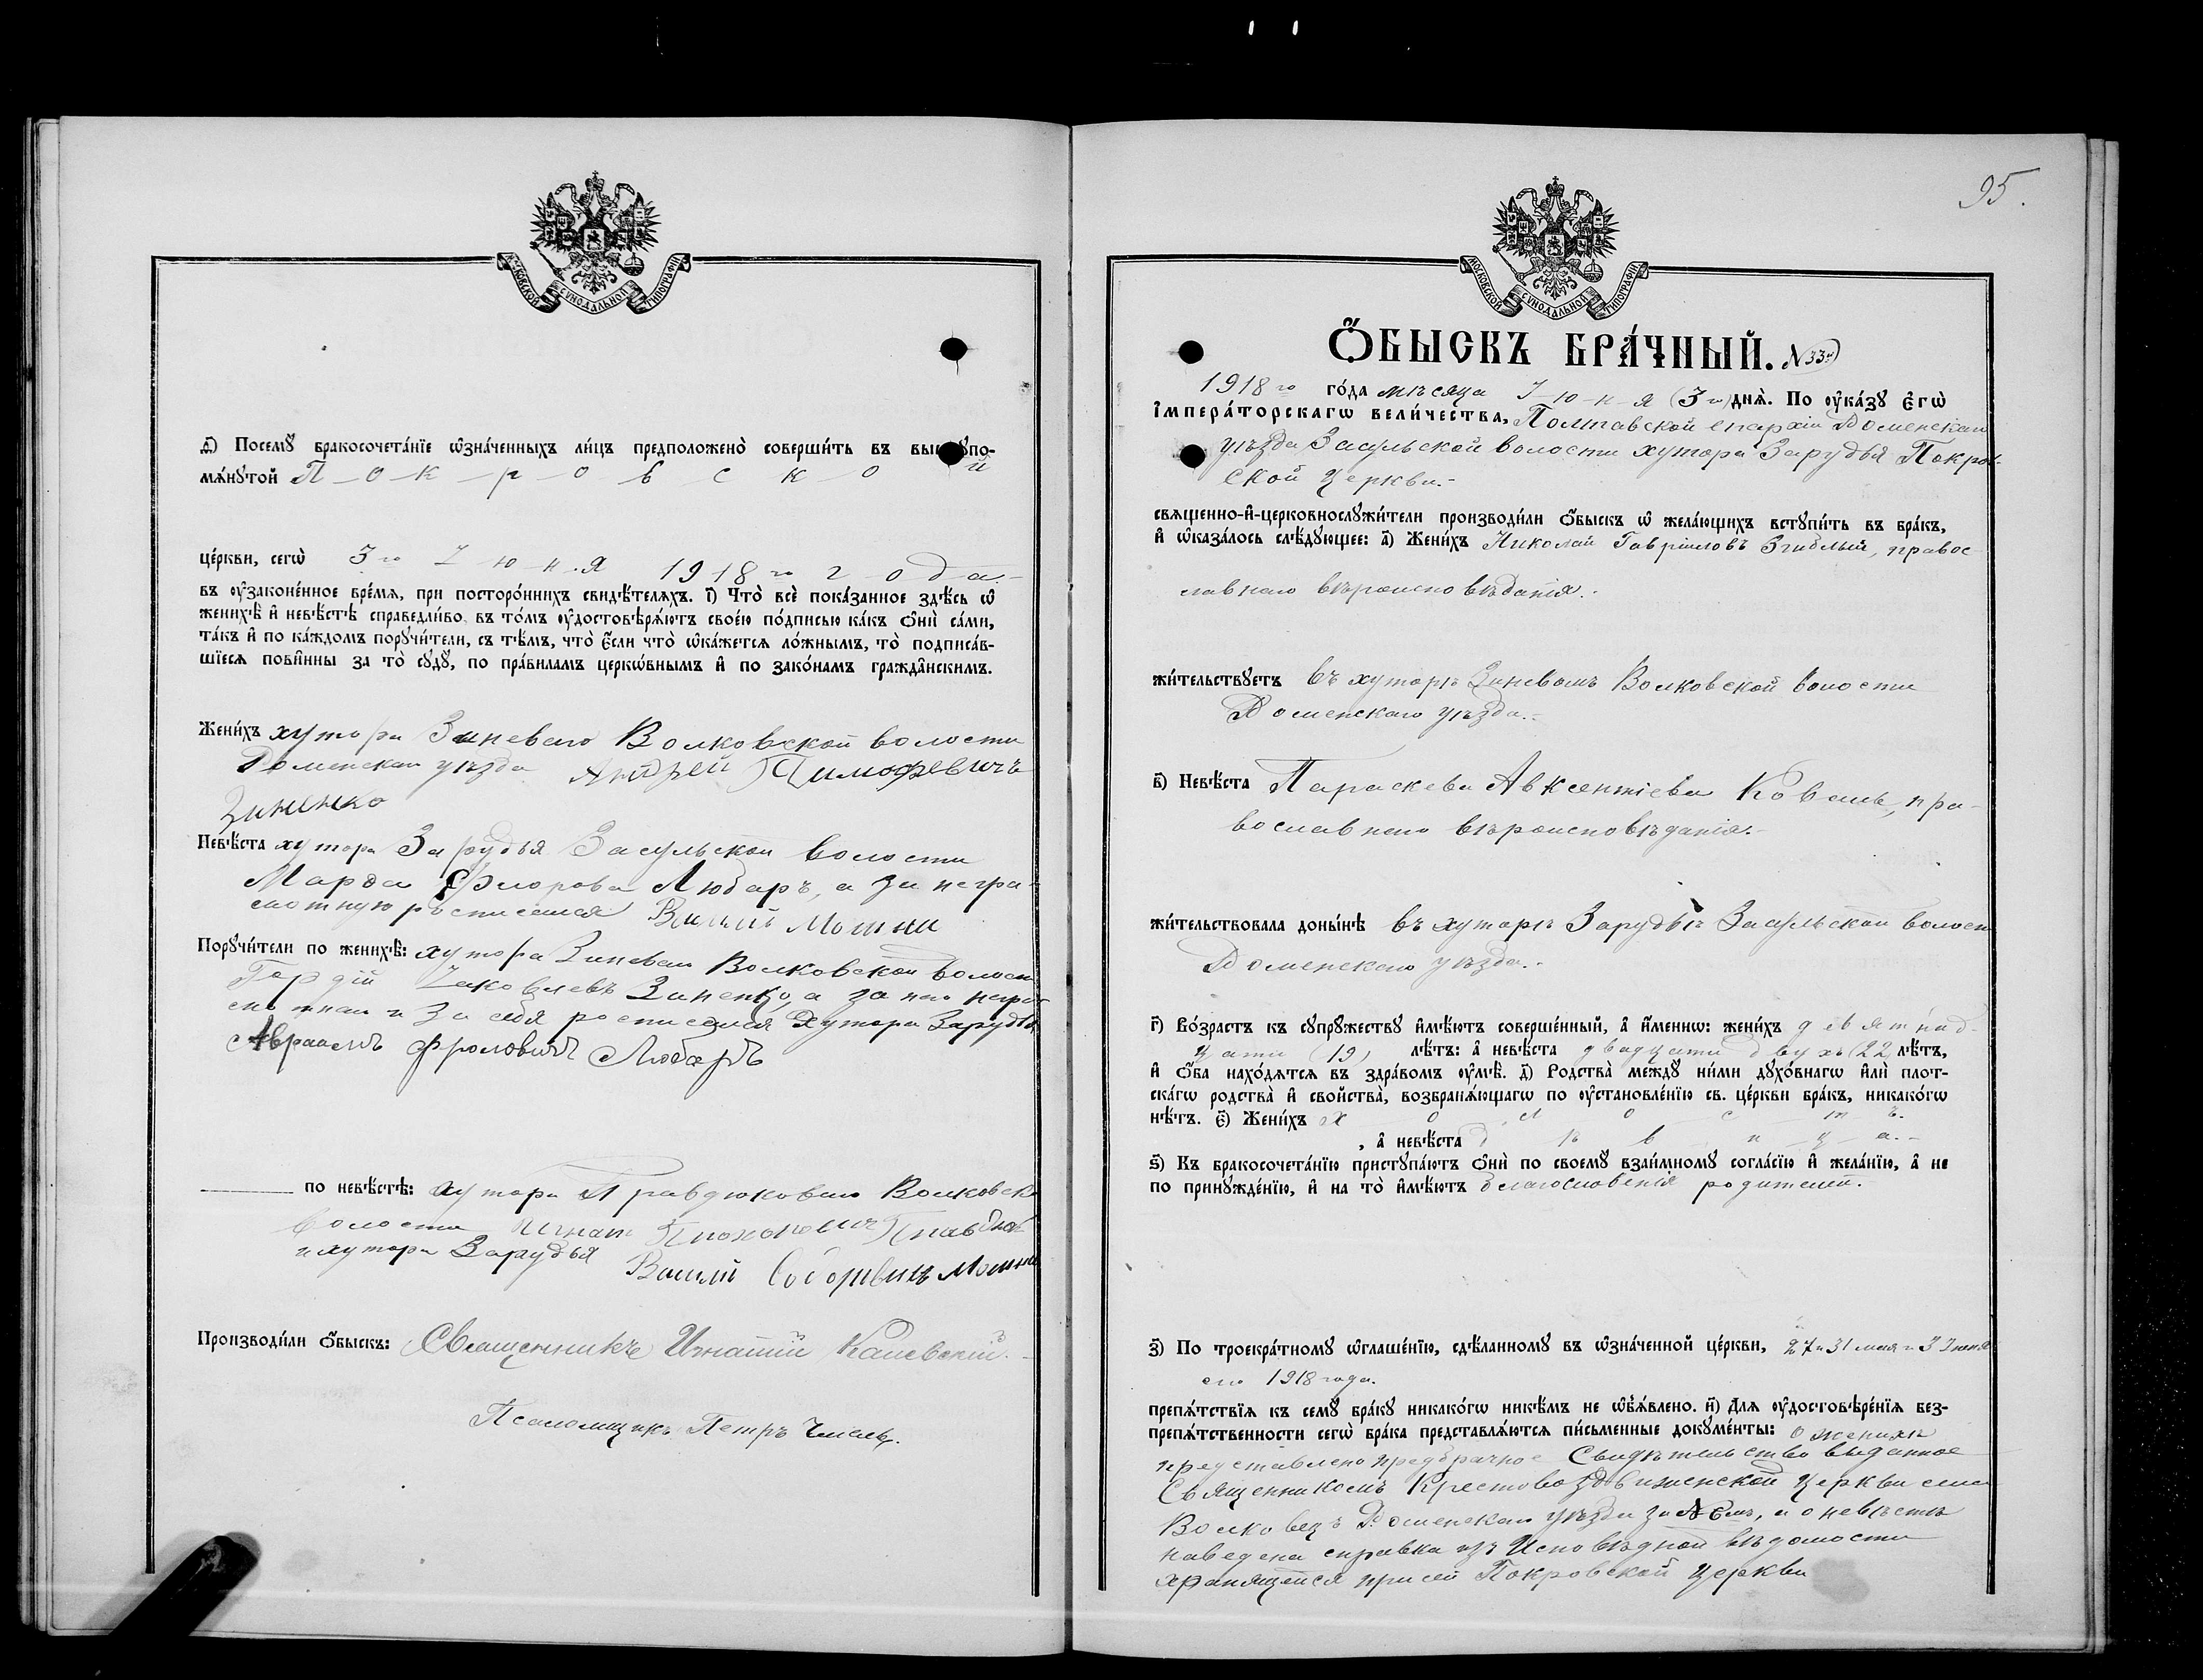 МОСКОВСКОЙ СѴНОДАЛЬНОЙ ТИПОГРАФІИ
ѳ҃) Посемꙋ̀ бракосочета́нїе ѡ҆зна́ченныхъ ли́цъ предположено̀ соверши́ть въ выш ꙋпо-
мѧ́нꙋтой П-о-к-р-о-в-с-к-о-й
це́ркви, сегѡ̀ 3го І-ю-н-я 1918го г-о-д-а.-
въ ᲂу҆законе́нное вре́мѧ, при посторо́ннихъ свидѣ́телѧхъ. і҃) Что̀ всѐ пока́занное здѣ́сь ѡ҆
женихѣ̀ и҆ невѣ́стѣ справедли́во, въ то́мъ ᲂу҆достовѣрѧ́ютъ свое́ю по́дписью ка́къ ѻ҆нѝ са́ми,
та́къ и҆ по ка́ждомъ порꙋчи́тели, съ тѣ́мъ, что̀ є҆́сли что̀ ѡ҆ка́жетсѧ ло́жнымъ, то̀ подписа́в-
шїесѧ пови́нны за то̀ сꙋдꙋ̀, по пра́виламъ церкѡ́внымъ и҆ по зако́намъ гражда́нскимъ.
Жени́хъ хутора Зиневаго Волковской волости
Роменскаго уѣзда Андрей Тимофевичъ
Зиненко
Невѣ́ста хутора Зарудья Засульской волости
Марфа Фролова Любаръ, а за негра-
мотную росписался Василій
Порꙋчи́тели по женихѣ̀: хутора Зиневаго Волковской волости
Гордій Яковлевъ Зиненко, а за него негра-
мотнаго и за себя росписался хутора Зарудья
Авраамъ Фроловичъ Любаръ
по невѣ́стѣ: хутора Правдюковаго Волковской
волости Игнат
и хутора Зарудья Василій
Производи́ли ѻ҆́быскъ: Священникъ Игнатій
Псаломщикъ Петръ
95.
МОСКОВСКОЙ СѴНОДАЛЬНОЙ ТИПОГРАФІИ
Ѻ҆́БЫСКЪ БРА́ЧНЫЙ. №33й
1918го го́да мѣсяца І-ю-н-я (3го) днѧ̀. По ᲂу҆ка́зꙋ є҆гѡ̀
і҆мпера́торскагѡ вели́чества, Полтавской епархіи Роменскаго
уѣзда Засульской волости хутора Зарудья Покров-
ской церкви.-
свѧще́нно-и҆-церковнослꙋжи́тели производи́ли ѻ҆́быскъ ѡ҆ жела́ющихъ встꙋпи́ть въ бра́къ,
и҆ ѡ҆каза́лось слѣ́дꙋющее: а҃) Жени́хъ Николай Гавріиловъ Згиблый, правос-
лавнаго вѣроисповѣданія.-
жи́тельствꙋетъ въ хуторѣ Зиневомъ Волковской волости
Роменскаго уѣзда.-
в҃) Невѣ́ста Параскева Авксентіева Коваль, пра-
вославнаго вѣроисповѣданія.-
жи́тельствовала доны́нѣ въ хуторѣ Зарудьѣ Засульской волости
Роменскаго уѣзда.-
г҃) Во́зрастъ къ сꙋпрꙋ́жествꙋ и҆мѣ́ютъ соверше́нный, а҆ и҆́меннѡ: жени́хъ девятнад-
цати (19) лѣ́тъ: а҆ невѣ́ста двадцати двухъ (22) лѣ́тъ,
и҆ ѻ҆́ба нахо́дѧтсѧ въ здра́вомъ ᲂу҆мѣ̀. д҃) Родства̀ междꙋ̀ ни́ми дꙋхо́внагѡ и҆лѝ плот-
ска́гѡ родства̀ и҆ свойства̀, возбранѧ́ющагѡ по ᲂу҆становле́нїю св. це́ркви бра́къ, никако́гѡ
нѣ́тъ. є҃) Жени́хъ х-о-л-о-с-т-ъ.
, а҆ невѣ́ста д-ѣ-в-и-ц-а.-
ѕ҃) Къ бракосочета́нїю пристꙋпа́ютъ ѻ҆нѝ по своемꙋ̀ взаи́мномꙋ согла́сїю и҆ жела́нїю, а҆ не
по принꙋжде́нїю, и҆ на то̀ и҆мѣ́ютъ благословенія родителей.
з҃) По троекра́тномꙋ ѡ҆глаше́нїю, сдѣ́ланномꙋ въ ѡ҆зна́ченной це́ркви, 27 и 31 мая и 3 Іюня
сего 1918 года.
препѧ́тствїѧ къ семꙋ̀ бра́кꙋ никако́гѡ никѣ́мъ не ѡ҆б̾ѧ́влено. и҃) Для ᲂу҆достовѣре́нїѧ без-
препѧ́тственности сегѡ̀ бра́ка представлѧ́ютсѧ пи́сьменные докꙋме́нты: о женихѣ
представлено предбрачное Свидѣтельство выданное
Священникомъ Крестовоздвиженской церкви села
Волковецъ Роменскаго уѣзда за № , и о невѣстѣ
наведена справка изъ Исповѣдной вѣдомости
хранящейся при сей Покровской церкви